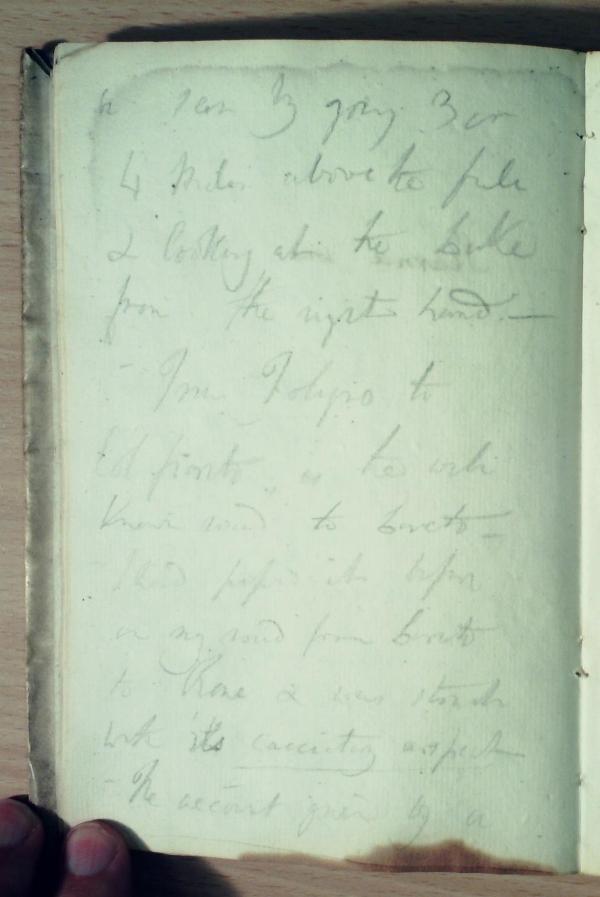 seen by going 3 or
4 miles above the
& looking at the lake
from the right hand. —
- From Foligno to
is the well
known road to Loreto —
I had passed it before
on my road from Loreto
to Rome & was struck
with its aspect
- The account given by a